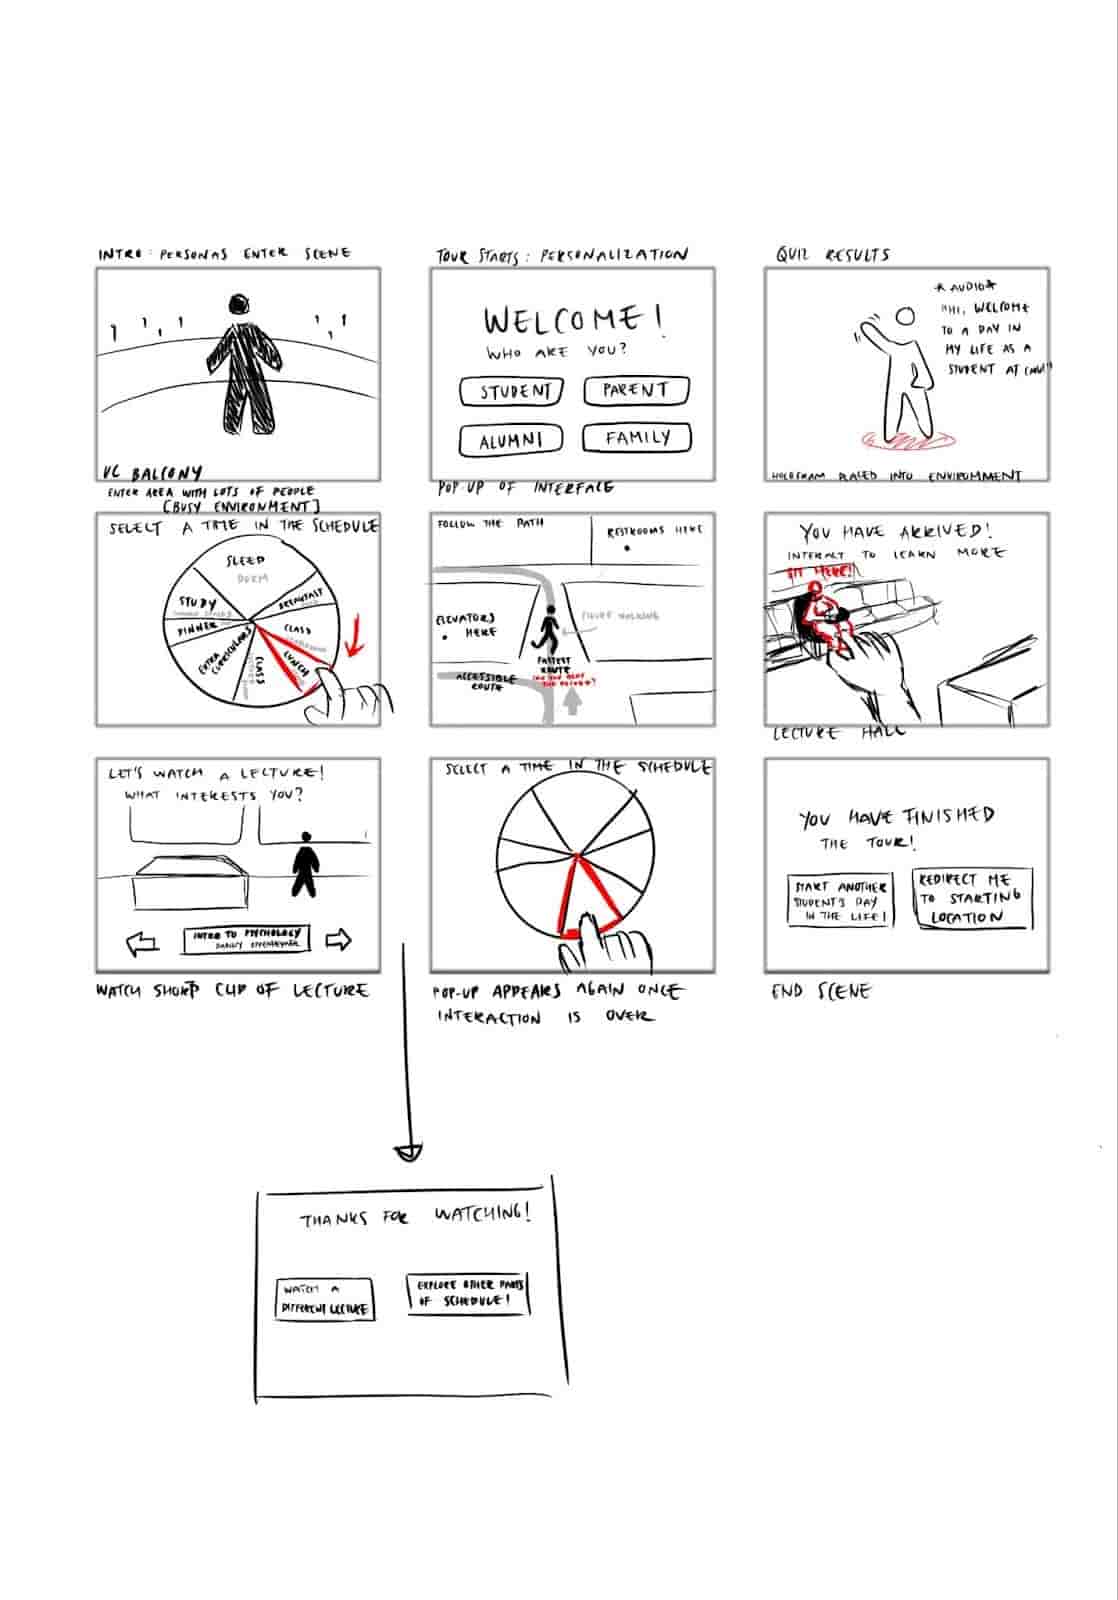 INTRO: PERSONAS ENTER SCENE
VC BALCONY
ENTER AREA WITH LOTS OF PEOPLE
[BUSY ENVIRONMENT]
TOUR STARTS: PERSONALIZATION
WELCOME!
WHO ARE YOU?
STUDENT
PARENT
ALUMNI
FAMILY
POP-UP OF INTERFACE
QUIZ RESULTS
*AUDIO*
"HI, WELCOME
TO A DAY IN
MY LIFE AS A
STUDENT AT
HOLOGRAM PLACED INTO ENVIRONMENT
SELECT A TIME IN THE SCHEDULE
SLEEP
DORM
STUDY
BREAKFAST
DINNER
CLASS
EXTRA
CURRICULARS
CLASS
LUNCH
FOLLOW THE PATH
RESTROOMS HERE
ELEVATORS
HERE
FIGURE WALKING
FASTEST
ROUTE
ACCESSIBLE
ROUTE
YOU HAVE ARRIVED!
INTERACT TO LEARN MORE
SIT HERE!
LECTURE HALL
LET'S WATCH A LECTURE!
WHAT INTERESTS YOU?
INTRO TO PSYCHOLOGY
WATCH SHORT CLIP OF LECTURE
SELECT A TIME IN THE SCHEDULE
POP-UP APPEARS AGAIN ONCE
INTERACTION IS OVER
YOU HAVE FINISHED
THE TOUR!
START ANOTHER
STUDENT'S DAY
IN THE LIFE!
REDIRECT ME
TO STARTING
LOCATION
END SCENE
THANKS FOR WATCHING!
WATCH A
DIFFERENT LECTURE
EXPLORE OTHER PARTS
OF SCHEDULE!